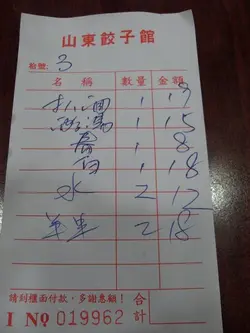 山東餃子館
枱號: 3
名稱 數量 金額
1 19
湯 1 15
1 8
1 18
水 2 12
2 18
請到櫃面付款,多謝惠顧! 合計
I No 019962